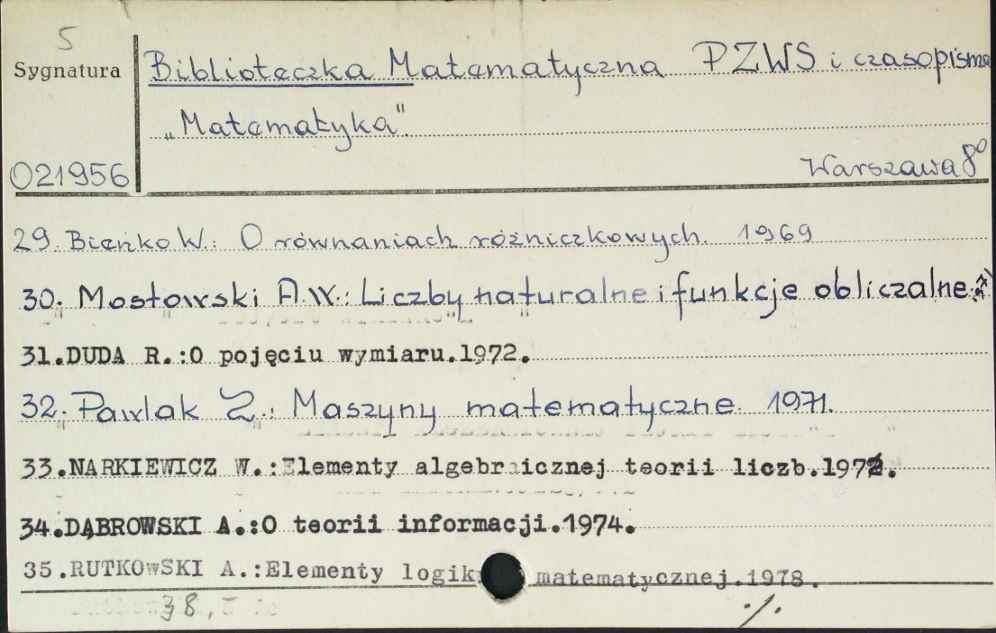 5
Sygnatura Biblioteczka Matematyczna PZWS i czasopisma
„Matematyka".
021956 Warszawa 8°
29. Bieńko W.: O równaniach różniczkowych. 1969
30. Mostowski A.W.: Liczby naturalne i funkcje obliczalne.
31.DUDA R.:O pojęciu wymiaru.1972.
32. Pawlak Z.: Maszyny matematyczne. 1971.
33.NARKIEWICZ W.:Elementy algebraicznej teorii liczb.1972.
34.DĄBROWSKI A.:O teorii informacji.1974.
35.RUTKOwSKI A.:Elementy logik matematycznej.1978.
38, ./.